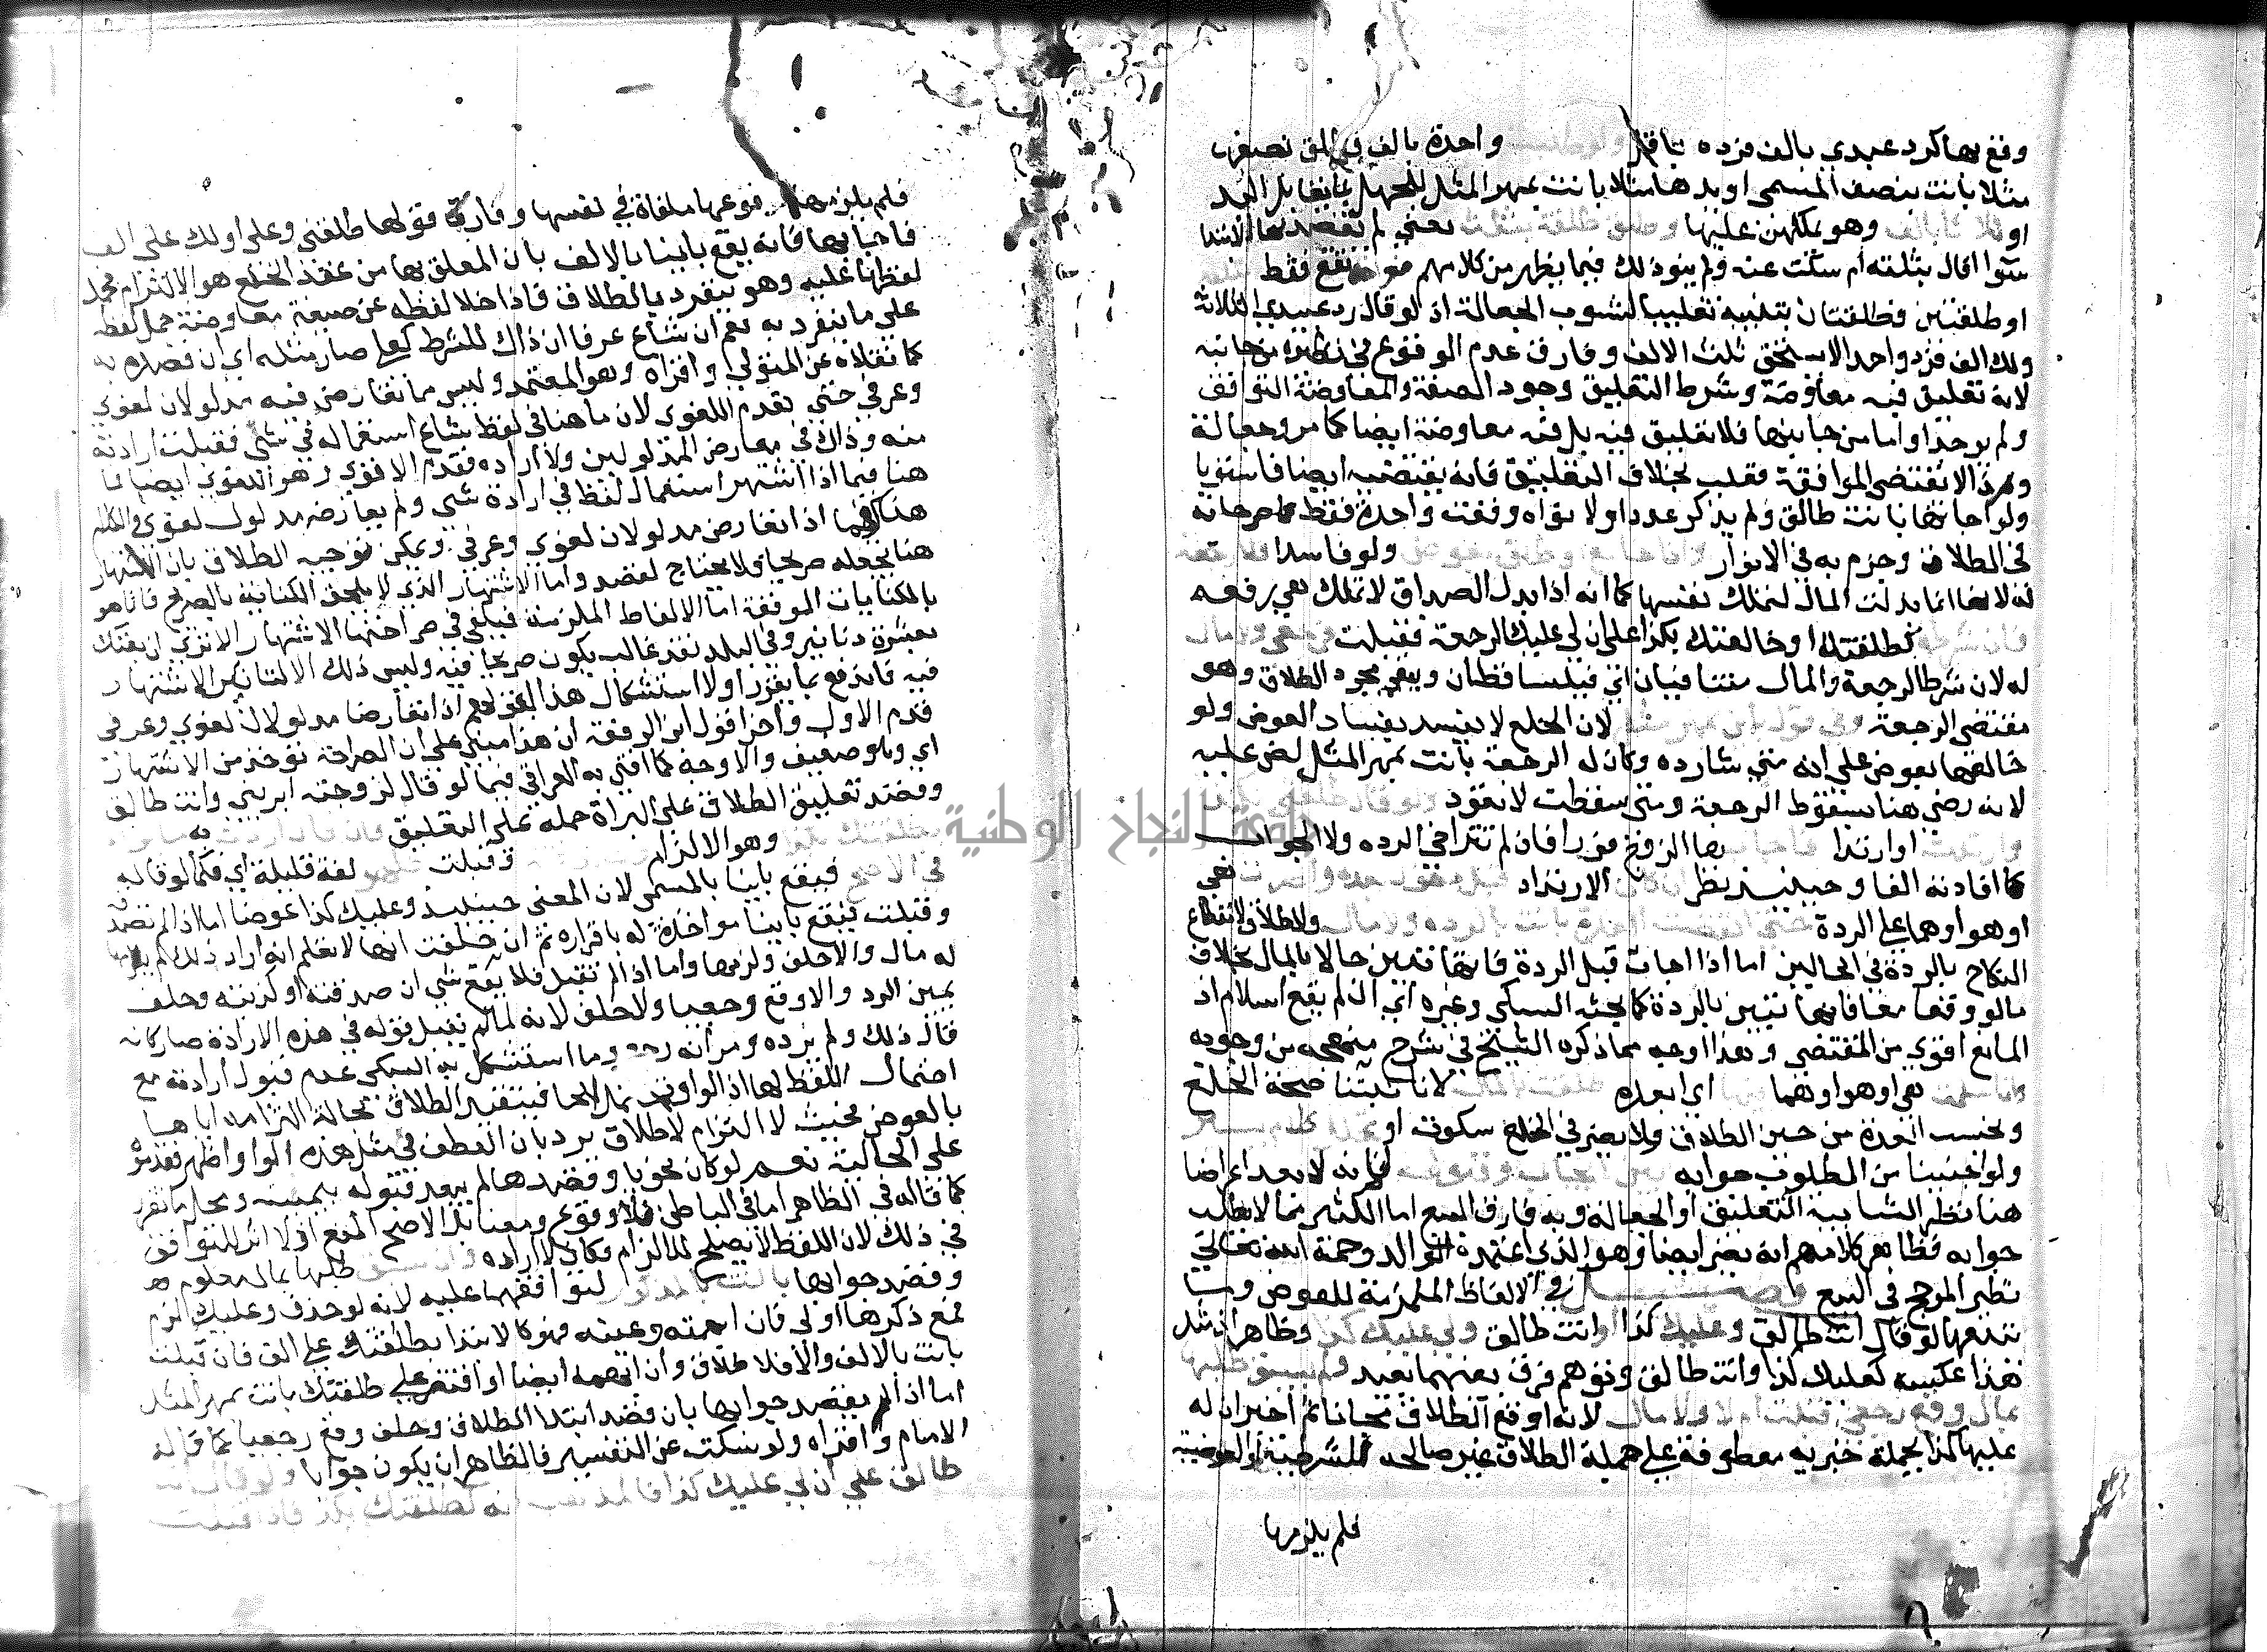 وقع بها كرد عبدي بالف فرده باقل واحدة بالف فطلق نصفها
مثلا بانت بنصف المسمى او يدها مثلا بانت بمهر المثل للجهل بما يقابل اليد
او ثلاثا بالف وهو يملكهن عليها وطلق طلقة بثلثه يعني لم يقصد بها الابتدا
سوا اقال بثلثه ام سكت عنه ولم ينو ذلك فيما يظهر من كلامهم فواحدة تقع فقط
او طلقتين فطلقتان بثلثيه تغليبا لشوب الجعالة اذ لو قال رد عبيدي الثلاثة
ولك الف فرد واحدا استحق ثلث الالف وفارق عدم الوقوع في نظيره من جانبه
لانه تعليق فيه معاوضة وشرط التعليق وجود الصفة والمعاوضة التوافق
ولم يوجدا واما من جانبها فلا تعليق فيه بل فيه معاوضة ايضا كما مر وجعالة
وهذا لا تقتضي الموافقة فغلب بخلاف التعليق فانه يقتضيه ايضا فاستويا
ولو اجابها بانت طالق ولم يذكر عددا ولا نواه وقعت واحدة فقط كما صرحا به
في الطلاق وجزم به في الانوار واذا خالع او طلق بعوض ولو فاسدا فلا رجعة
له لانها انما بذلت المال لتملك نفسها كما انه اذا بذل الصداق لا تملك هي رفعه
فان شرطها كطلقتك او خالعتك بكذا على ان لي عليك الرجعة فقبلت فرجعي ولا مال
له لان شرط الرجعة والمال متنافيان اي فيتساقطان ويبقى مجرد الطلاق وهو
مقتضى الرجعة وفي قول بائن بمهر مثل لان الخلع لا يفسد بفساد العوض ولو
خالعها بعوض على انه متى شا رده وكان له الرجعة بانت بمهر المثل نص عليه
لانه رضي هنا بسقوط الرجعة ومتى سقطت لا تعود ولو قال طلقني بكذا
وارتدت او ارتدا فاجاب بها الزوج فورا فان لم تتراخ الرده ولا الجواب
كما افادته الفا وحينئذ نظر ان كان الارتداد قبل دخول بعده واصرت هي
او هو او هما على الردة حتى انقضت العدة بانت بالرده ولا مال ولا طلاق لانقطاع
النكاح بالردة في الحالين اما اذا اجاب قبل الردة فانها تبين حالا بالمال بخلاف
ما لو وقعا معا فانها تبين بالردة كما بحثه السبكي وغيره اي ان لم يقع اسلام اذ
المانع اقوى من المقتضي وهذا اوجه مما ذكره الشيخ في شرح منهجه من وجوبه
وان اسلمت هي او هو او هما فيها اي العده طلقت بالمال لانا تبينا صحة الخلع
وتحسب العدة من حين الطلاق ولا يضر في الخلع سكوت او تخلل كلام يسير
ولو اجنبيا من المطلوب جوابه بين ايجاب وقبول لانه لا يعد اعراضا
هنا نظرا لشايبة التعليق او الجعالة وبه فارق البيع اما الكثير ممن لا يطلب
جوابه فظاهر كلامهم انه يضر ايضا وهو الذي اعتمده الوالد رحمة الله تعالى
نظير المرجح في البيع فصل في الالفاظ الملزمة للعوض وما
يتبعها لو قال انت طالق وعليك كذا او انت طالق ولي عليك كذا وظاهر ان مثل
هذا عكسه كعليك كذا وانت طالق وتوهم فرق بينهما بعيد ولم يسبق طلبها
بمال وقع رجعي قبلت ام لا ولا مال لانه اوقع الطلاق مجانا ثم اخبر ان له
عليها كذا بجملة خبريه معطوفة على جملة الطلاق غير صالحه للشرطية او العوضية
فلم يلزمها
فلم يلزمها لوقوعها ملغاة في نفسها وفارق قولها طلقني وعلي او لك علي الف
فاجابها فانه يقع باينا بالالف بان المعلق بها من عقد الخلع هو الالتزام فحمل
لفظها عليه وهو ينفرد بالطلاق فاذا خلا لفظه عن صيغة معاوضة حمل لفظه
على ما ينفرد به نعم ان شاع عرفا ان ذاك للشرط كعلى صار مثله اي ان قصده به
كما نقلاه عن المتولي واقراه وهو المعتمد وليس مما تعارض فيه مدلولان لغوي
وعرفي حتى يقدم اللغوي لان ما هنا في لفظ شاع استعماله في شي فقبلت ارادته
منه وذاك في تعارض المدلولين ولا اراده فقدم الاقوى وهو اللغوي ايضا فما
هنا فيما اذا اشتهر استعمال لفظ في ارادة شي ولم يعارضه مدلول لغوي والكلام
هناك فيما اذا تعارض مدلولان لغوي وعرفي ويمكن توجيه الطلاق بان الاشتهار
هنا يجعله صريحا ولا يحتاج لقصد واما الاشتهار الذي لا يلحق الكناية بالصريح فانما هو
بالكنايات الموقعة اما الالفاظ الملزمة فيكفي في صراحتها الاشتهار الا ترى ان بعتك
بعشرة دنانير وفي البلد نقد غالب يكون صريحا فيه وليس ذلك الا لتاثير الاشتهار
فيه فاندفع بما تقرر اولا استشكال هذا بقولهم اذا تعارضا مدلولان لغوي وعرفي
قدم الاول واخرا قول ابن الرفعة ان هذا مبني على ان الصراحة توخذ من الاشتهار
اي وهو ضعيف والاوجه كما افتى به العراقي فيما لو قال لزوجته ابريني وانت طالق
وقصد تعليق الطلاق على البراة حمله على التعليق فان قال اردت به ما يراد
بطلقتك بكذا وهو الالزام وصدقته وقبلت فكهو لغة قليلة اي فكما لو قاله
في الاصح فيقع باينا بالمسمى لان المعنى حينئذ وعليك كذا عوضا اما اذا لم تصدقه
وقبلت فيقع باينا مواخذة له باقراره ثم ان حلفت انها لا تعلم انه اراد ذلك لم يلزمها
له مال والا حلف ولزمها واما اذا لم تقبل فلا يقع شي ان صدقته او كذبته وحلف
يمين الرد والا وقع رجعيا ولا حلف لانه لما لم يقبل قوله في هذه الارادة صار كانه
قال ذلك ولم يرده ومر انه رجعي وما استشكل به السبكي عدم قبول ارادته مع
احتمال اللفظ لها اذ الواو تحتمل الحال فيتقيد الطلاق بحالة التزامه اياها
بالعوض فحيث لا التزام لا طلاق يرد بان العطف في مثل هذه الواو اظهر فقدموه
على الحالية نعم لو كان نحويا وقصدها لم يبعد قبوله بيمينه ومحل ما تقرر
كما قاله في الظاهر اما في الباطن فلا وقوع ومقابل الاصح المنع اذ لا اثر للتوافق
في ذلك لان اللفظ لا يصلح للالزام فكان لا اراده وان سبق طلبها بمال معلوم
وقصد جوابها بانت بالمذكور لتوافقهما عليه لانه لو حذف وعليك لزم
فمع ذكرها اولى فان ابهمته وعينه فهو كالابتدا بطلقتك على الف فان قبلت
بانت بالالف والا فلا طلاق وان ابهمه ايضا او اقتصر على طلقتك بانت بمهر المثل
اما اذا لم يقصد جوابها بان قصد ابتدا الطلاق وحلف وقع رجعيا كما قاله
الامام واقراه ولو سكت عن التفسير فالظاهر ان يكون جوابا ولو قال انت
طالق على ان لي عليك كذا فالمذهب انه كطلقتك بكذا فاذا قبلت
جامعة النجاح الوطنية